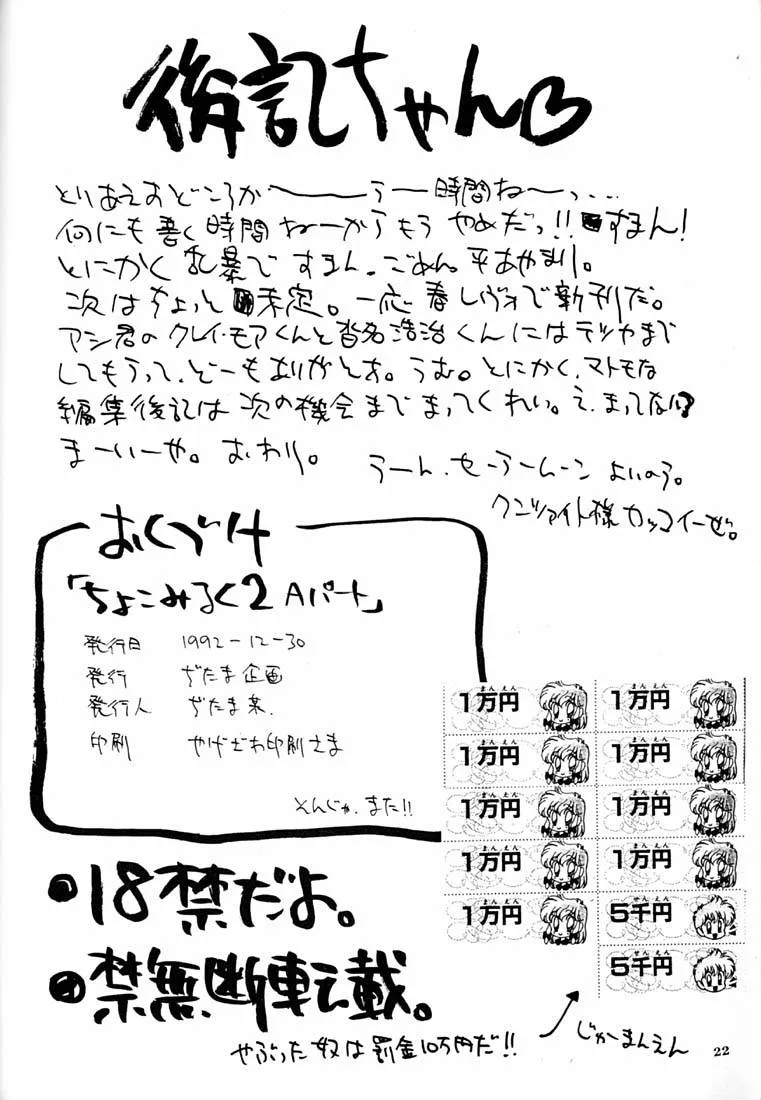 後記ちゃん♡
とりあえおどころか〜〜〜うー時間ね〜っ…
何にも書く時間ねーからもうやめだっ!!すまん!
とにかく乱暴ですまん。ごめん。平あやまり。
次はちょっと未定。一応春レヴォで新刊だ。
アシ君のクレイ・モアくんと沓名浩治くんにはテツヤまで
してもらって、どーもありがとお。うむ。とにかく、マトモな
編集後記は次の機会までまってくれい。え、まってない?
まーいーや。おわり。
うーん、セーラームーンよいのう。
クンツァイト様カッコイーぜ。
おくづけ
「ちょこみるく2 Aパート」
発行日 1992-12-30
発行 ぢたま企画
発行人 ぢたま某.
印刷 やげざわ印刷さま
そんじゃ、また!!
まんえん まんえん
1万円 1万円
まんえん まんえん
1万円 1万円
まんえん まんえん
1万円 1万円
まんえん まんえん
1万円 1万円
まんえん せんえん
1万円 5千円
せんえん
5千円
●18禁だよ。
●禁無断転載。
やぶった奴は罰金10万円だ!!
じゅーまんえん
22